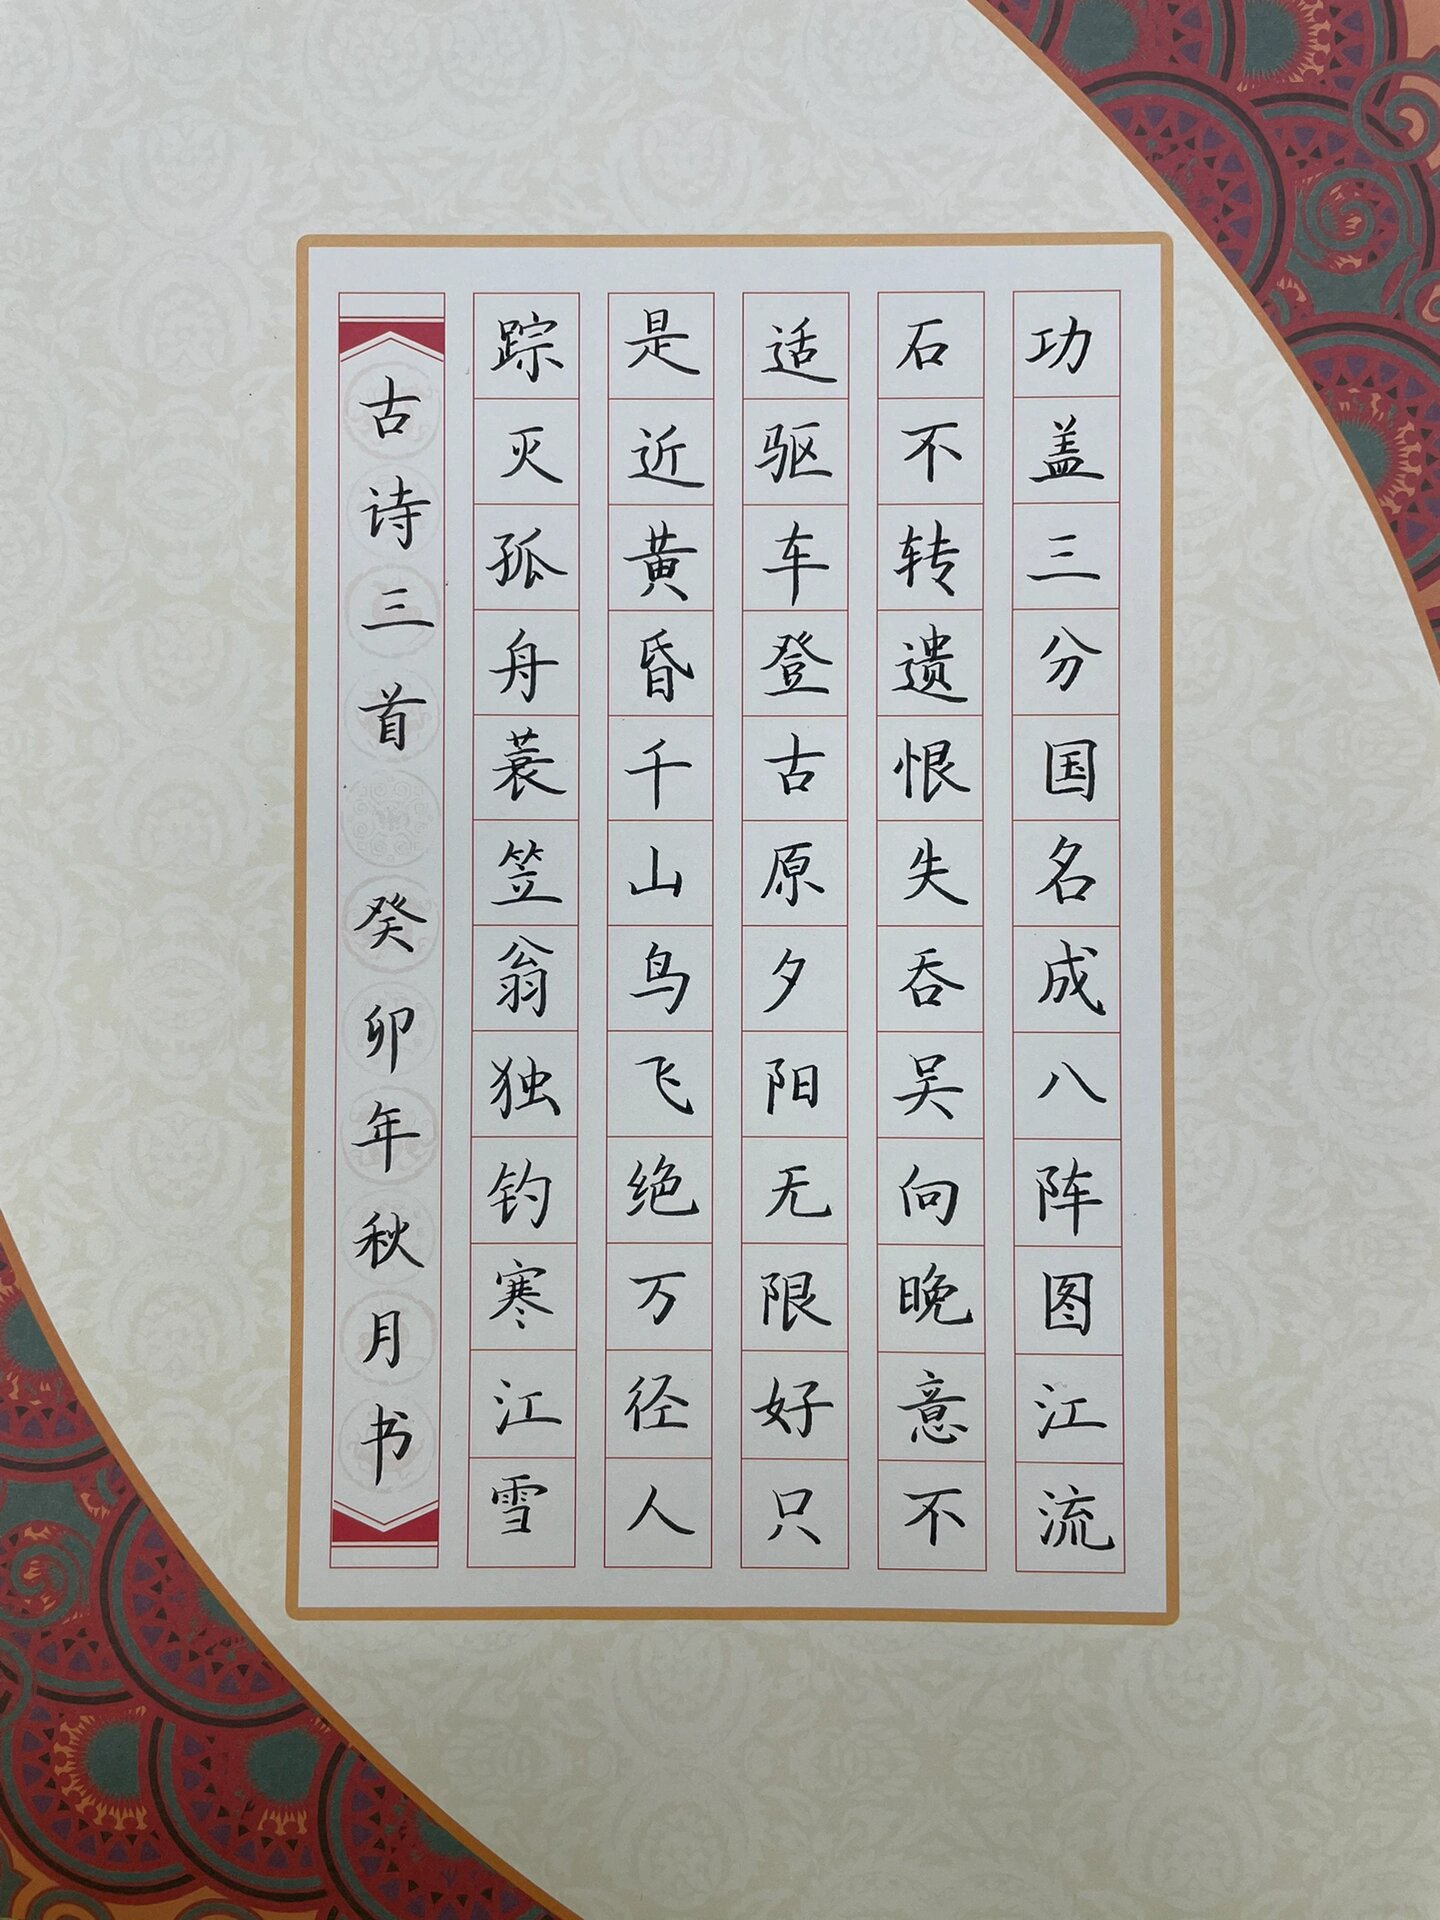 功盖三分国名成八阵图江流
石不转遗恨失吞吴向晚意不
适驱车登古原夕阳无限好只
是近黄昏千山鸟飞绝万径人
踪灭孤舟蓑笠翁独钓寒江雪
古诗三首 癸卯年秋月书